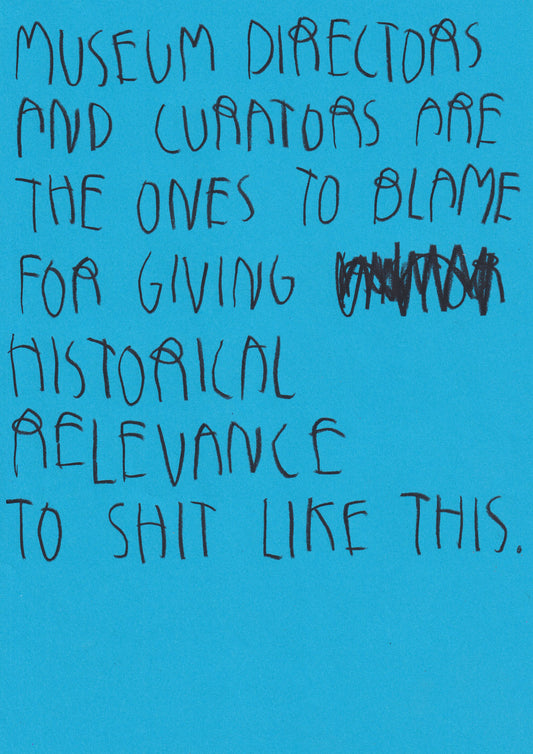 MUSEUM DIRECTORS
AND CURATORS ARE
THE ONES TO BLAME
FOR GIVING
HISTORICAL
RELEVANCE
TO SHIT LIKE THIS.